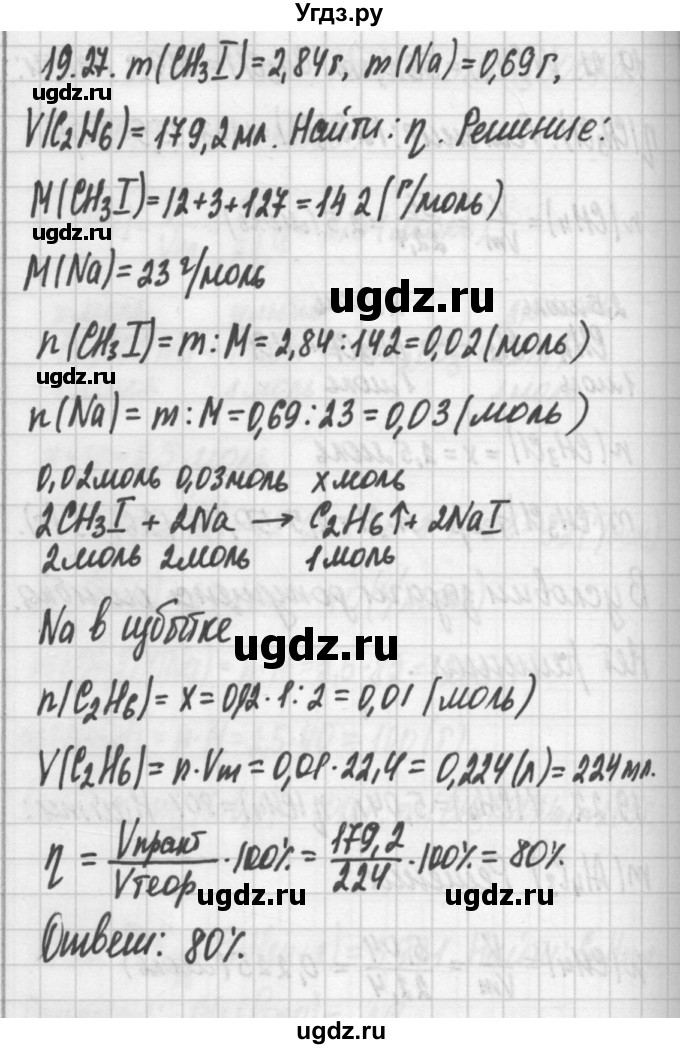 Угдз.ру
19.27. m(CH₃I)=2,84г, m(Na)=0,69г,
ugdz.ru
V(C₂H₆)=179,2мл. Найти: η. Решение:
M(CH₃I)=12+3+127=142(г/моль)
ugdz.ru
M(Na)=23 г/моль
ugdz.ru
n(CH₃I)=m:M=2,84:142=0,02(моль)
ugdz.ru
n(Na)=m:M=0,69:23=0,03(моль)
0,02моль 0,03моль x моль
2CH₃I + 2Na → C₂H₆↑+ 2NaI
2моль 2моль 1моль
Na в избытке
ugdz.ru
n(C₂H₆)=x=0,02·1:2=0,01 (моль)
V(C₂H₆)=n·Vm=0,01·22,4=0,224(л)=224мл.
η = Vпракт/Vтеор ·100%= 179,2/224 ·100%=80%.
ugdz.ru ugdz.ru
Ответ: 80%.
ugdz.ru
ugdz.ru